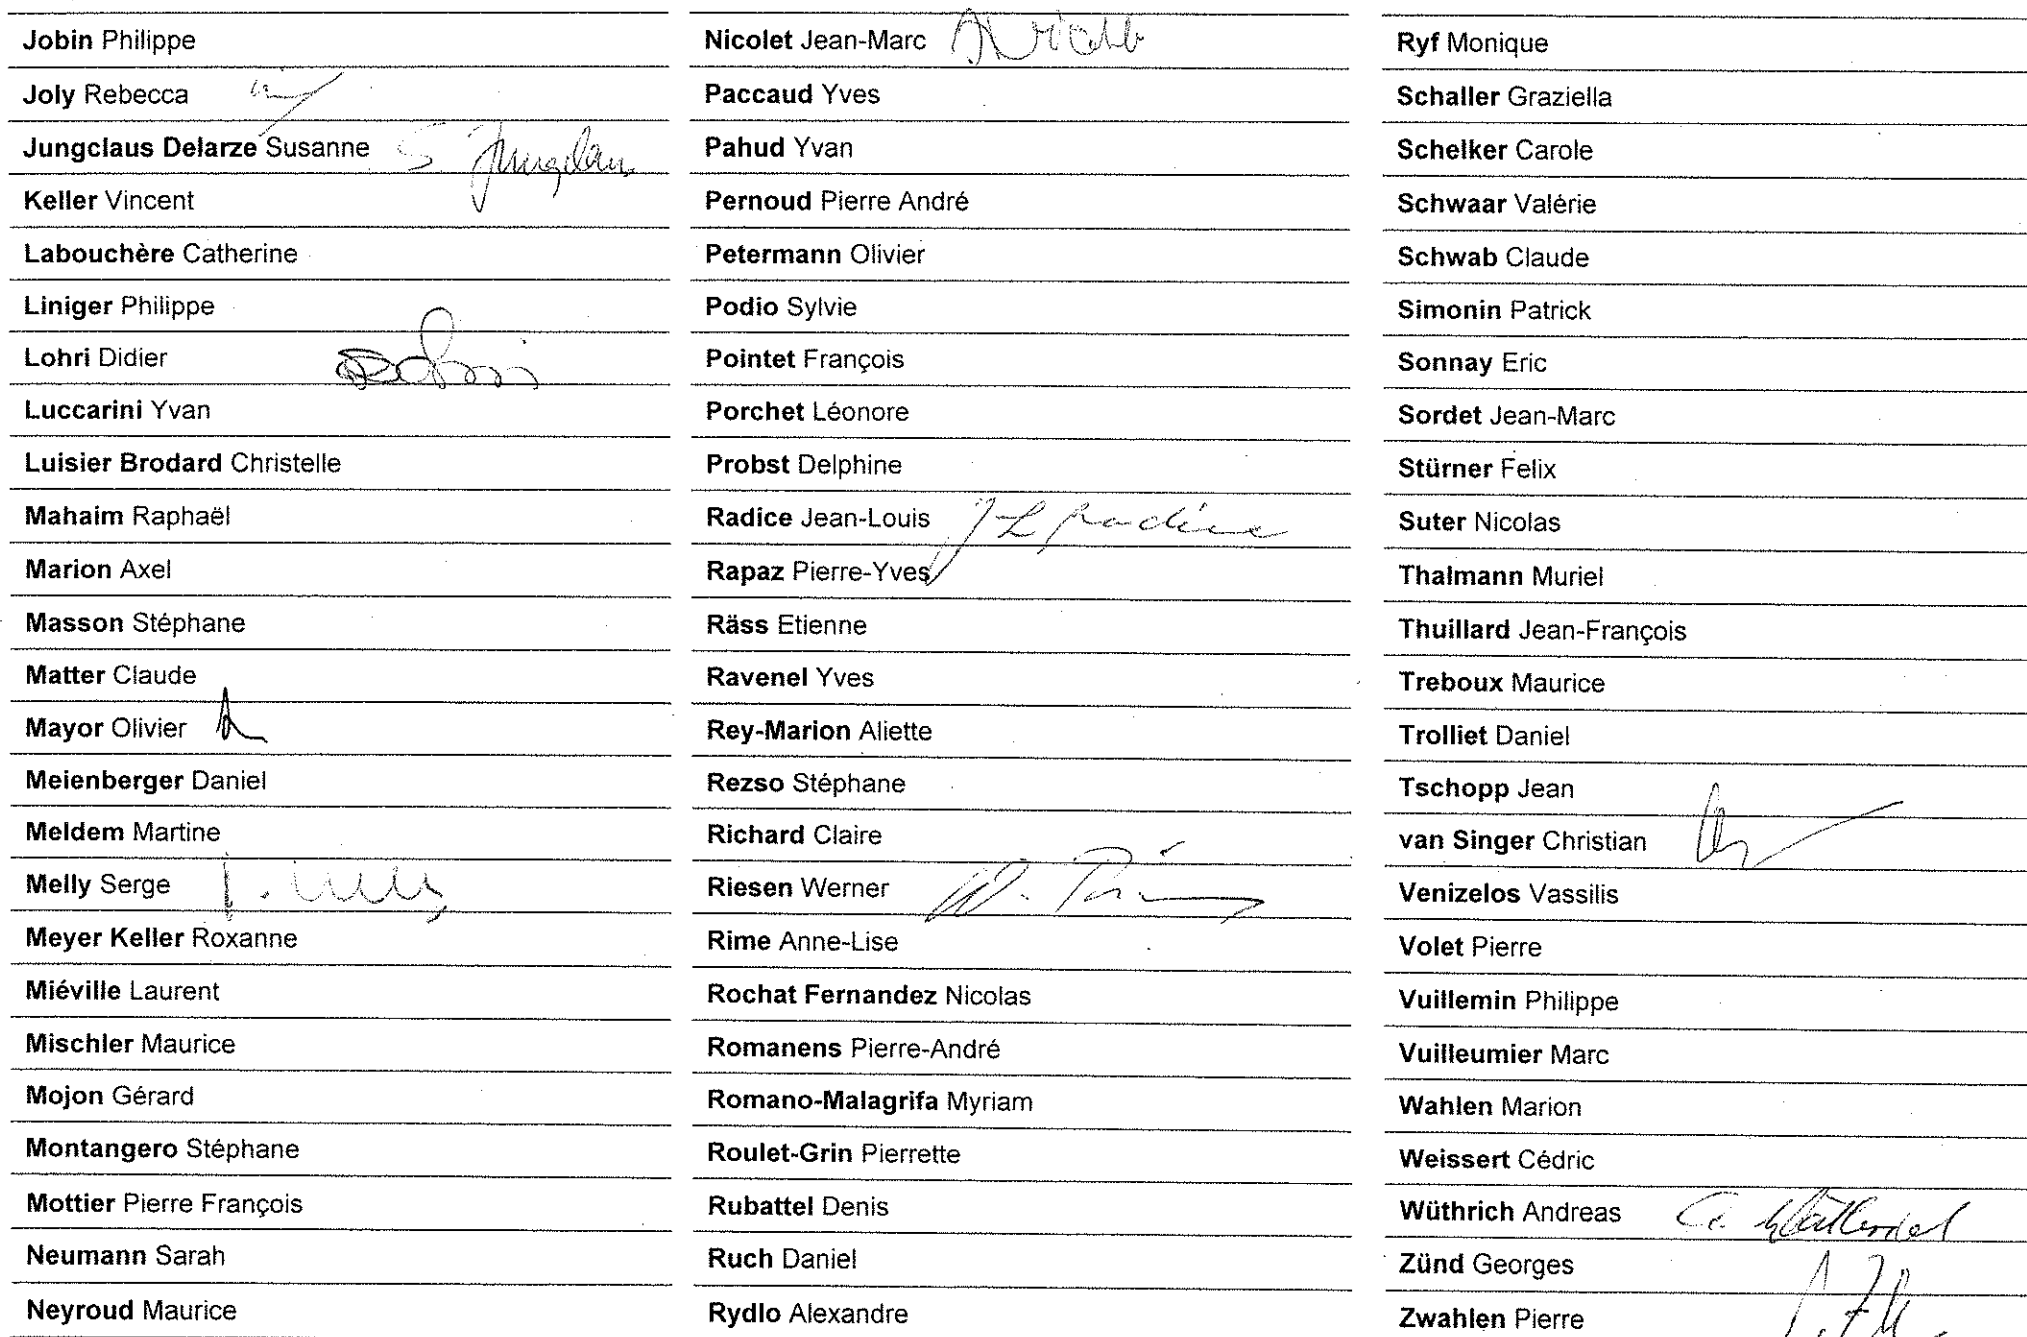 Jobin Philippe
Joly Rebecca
Jungclaus Delarze Susanne S. Jungclaus
Keller Vincent
Labouchère Catherine
Liniger Philippe
Lohri Didier
Luccarini Yvan
Luisier Brodard Christelle
Mahaim Raphaël
Marion Axel
Masson Stéphane
Matter Claude
Mayor Olivier
Meienberger Daniel
Meldem Martine
Melly Serge
Meyer Keller Roxanne
Miéville Laurent
Mischler Maurice
Mojon Gérard
Montangero Stéphane
Mottier Pierre François
Neumann Sarah
Neyroud Maurice
Nicolet Jean-Marc
Paccaud Yves
Pahud Yvan
Pernoud Pierre André
Petermann Olivier
Podio Sylvie
Pointet François
Porchet Léonore
Probst Delphine
Radice Jean-Louis JL Radice
Rapaz Pierre-Yves
Räss Etienne
Ravenel Yves
Rey-Marion Aliette
Rezso Stéphane
Richard Claire
Riesen Werner
Rime Anne-Lise
Rochat Fernandez Nicolas
Romanens Pierre-André
Romano-Malagrifa Myriam
Roulet-Grin Pierrette
Rubattel Denis
Ruch Daniel
Rydlo Alexandre
Ryf Monique
Schaller Graziella
Schelker Carole
Schwaar Valérie
Schwab Claude
Simonin Patrick
Sonnay Eric
Sordet Jean-Marc
Stürner Felix
Suter Nicolas
Thalmann Muriel
Thuillard Jean-François
Treboux Maurice
Trolliet Daniel
Tschopp Jean
van Singer Christian
Venizelos Vassilis
Volet Pierre
Vuillemin Philippe
Vuilleumier Marc
Wahlen Marion
Weissert Cédric
Wüthrich Andreas
Zünd Georges
Zwahlen Pierre